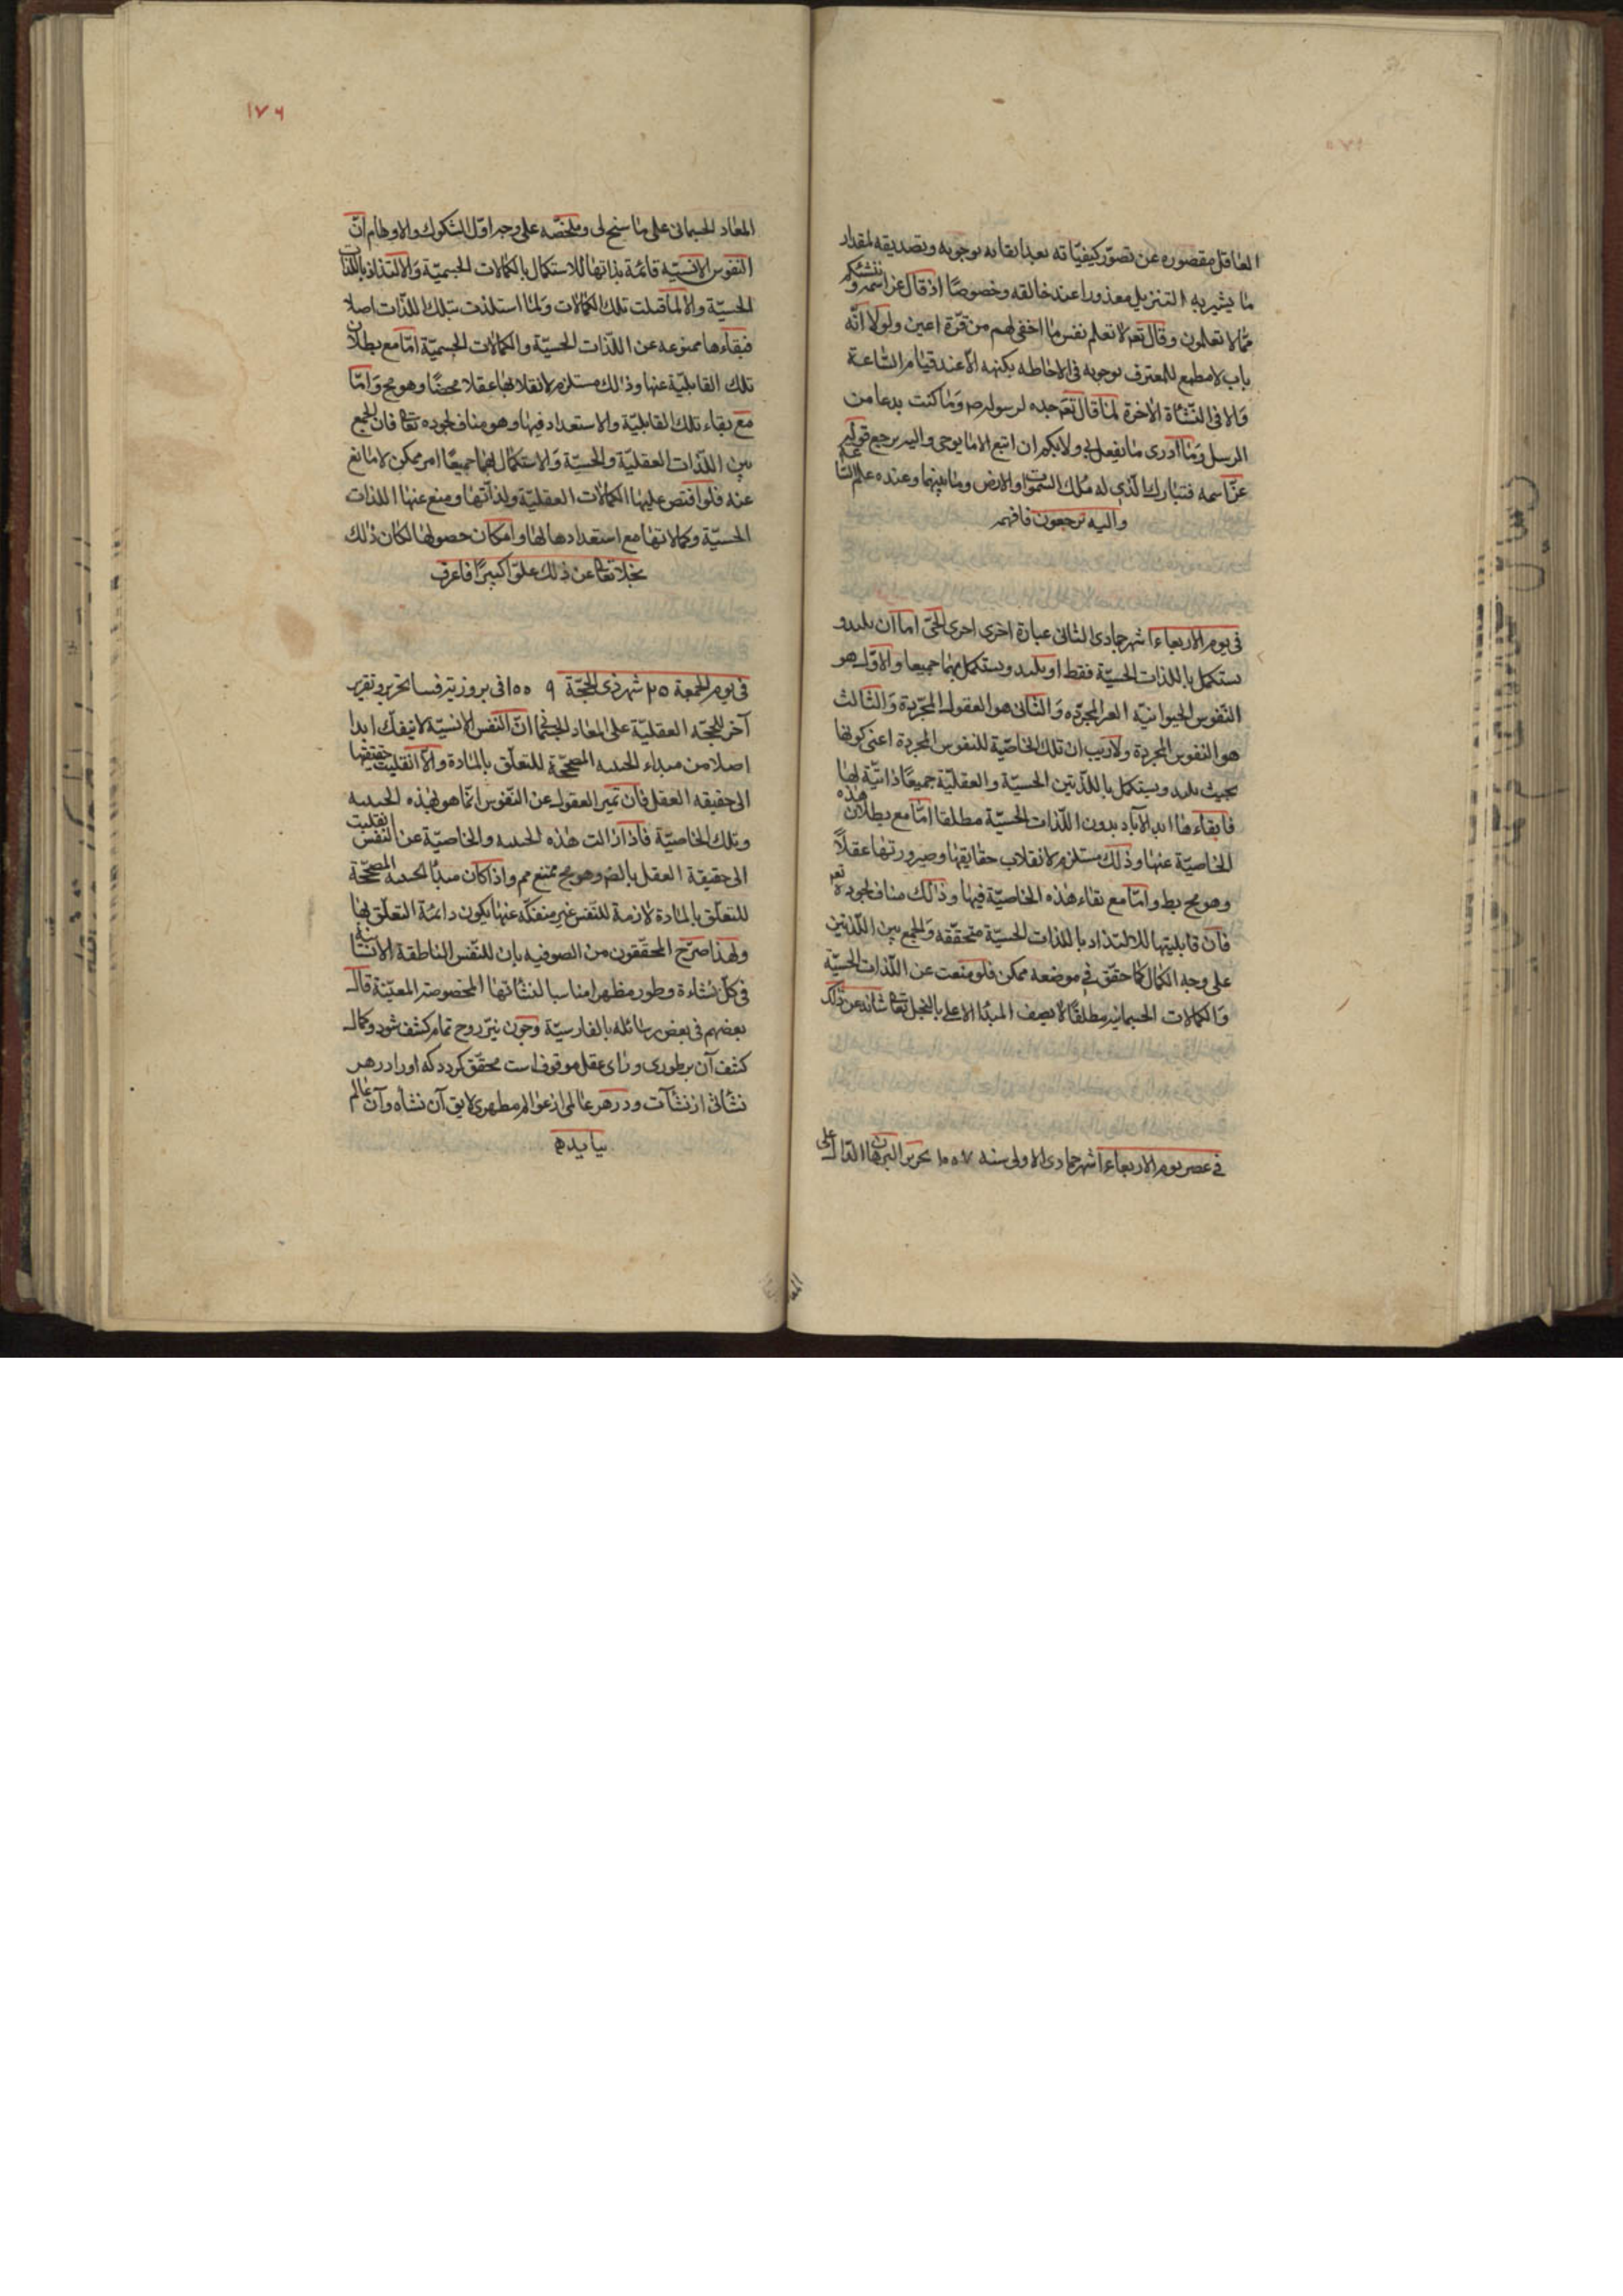 العاقل مقصوره عن تصوّر كيفيّاته بعد ايقانه بوجوبه وتصديقه لمقدار
ما يشير به التنزيل معذورا عند خالقه وخصوصًا اذ قال عزّ اسمه وننشئكم
فيما لا تعلمون وقال تعه لا تعلم نفس ما اخفى لهم من قرّة اعين ولولا انّه
باب لا مطمع للمعترف بوجوبه فى الاحاطه بكنهه الّا عند قيام الساعة
والا فى النّشأة الاخرة لما قال تعه جده لرسوله ص وما كنت بدعا من
الرسل وما أدرى ما يفعل بى ولا بكم ان اتبع الا ما يوحى واليه يرجع قوله
عزّ اسمه فتبارك الّذى له ملك السّموات والارض وما بينهما وعنده علم السّاعة
واليه ترجعون فافهم
فى يوم الاربعاء شهر جمادى الثانى عبارة اخرى احرى الحىّ اما ان يلتذ و
يستكمل باللذات الحسيّة فقط او يلتذ ويستكمل بهما جميعا والاوّل هو
النّفوس الحيوانيّه الغير المجرّده والثّانى هو العقول المجرّدة والثّالث
هو النفوس المجردة ولا ريب ان تلك الخاصّية للنفوس المجردة اعنى كونها
بحيث يلتذ ويستكمل باللذّتين الحسيّة والعقليّة جميعًا ذاتيّة لها
فابقاءها ابد الآباد بدون اللّذات الحسيّة مطلقا امّا مع بطلان هذه
الخاصيّة عنها وذلك مستلزم لانقلاب حقايقها وصيرورتها عقلاً
وهو مح بط وامّا مع بقاء هذه الخاصيّة فيها وذلك مناف لجوده تعه
فانّ قابليتها للالتذاذ باللذات الحسيّة متحقّقه والجمع بين اللّذتين
على وجه الكمال كما حقّق فى موضعه ممكن فلو منعت عن اللّذات الحسيّة
والكمالات الجسمانيه مطلقًا لا يصف المبدأ الاعلى بالبخل تعا شانه عن ذلك
فى عصر يوم الاربعاء شهر جمادى الاولى سنه ١٠٥٧ تحرير البرهان الدّال على
المعاد
١٧٦
المعاد الجسمانى على ما سنح لى وملخّصه على وجه اوّل الشكوك والاوهام انّ
النفوس الانسيّه قائمة بذاتها للاستكمال بالكمالات الجسميّة والالتذاذ باللذات
الحسيّة والا لما قبلت تلك الكمالات ولما استلذت بتلك اللذّات اصلا
فبقاءها ممنوعه عن اللذّات الحسيّة والكمالات الجسميّة امّا مع بطلان
تلك القابليّة عنها وذلك مستلزم لانقلابها عقلا محضًا وهو مح وامّا
مع بقاء تلك القابليّة والاستعداد فيها وهو مناف لجوده تعا فان الجمع
بين اللذّات العقليّة والحسيّة والاستكمال بهما جميعًا امر ممكن لا مانع
عنه فلو اقتص عليها الكمالات العقليّة ولذاتها ومنع عنها اللذات
الحسيّة وكمالاتها مع استعدادها لها وامكان حصولها لكان ذلك
بخلا تعا عن ذلك علوّا كبيرًا فاعرف
فى يوم الجمعة ٢٥ شهر ذى الحجّة ١٠٥٩ فى بروز تحرير وتقرير
آخر للحجّه العقليّة على المعاد الجسمانى انّ النفس الانسيّة لا ينفك ابدا
اصلا من مبداء الحيثيه المصحّحة للتعلّق بالمادة والّا انقلبت حقيقتها
الى حقيقه العقل فانّ تميز العقول عن النّفوس انّما هو بهذه الحيثيه
وتلك الخاصيّة فاذا زالت هذه الحيثيه والخاصيّة عن النفس انقلبت
الى حقيقة العقل بالضه وهو مح ممتنع واذا كان مبدأ الحيثيه المصحّحة
للتعلّق بالمادة لازمة للنّفس غير منفكّه عنها يكون دائمة التعلّق بها
ولهذا صرّح المحقّقون من الصوفيه بان للنّفس الناطقة الانسانيّة
فى كلّ نشاءة وطور مظهرا مناسبا لنشاتها المخصوصة المعيّنة قال
بعضهم فى بعض رسائله بالفارسيّة وچون نيز روح تمام كشف شود وكمال
كشف آن بر طورى وراى عقل موقوفست محقّق گردد كه او را در هر
نشأتى از نشآت ودر هر عالمى از عوالم مظهرى لايق آن نشأه وآن عالم
ببايد